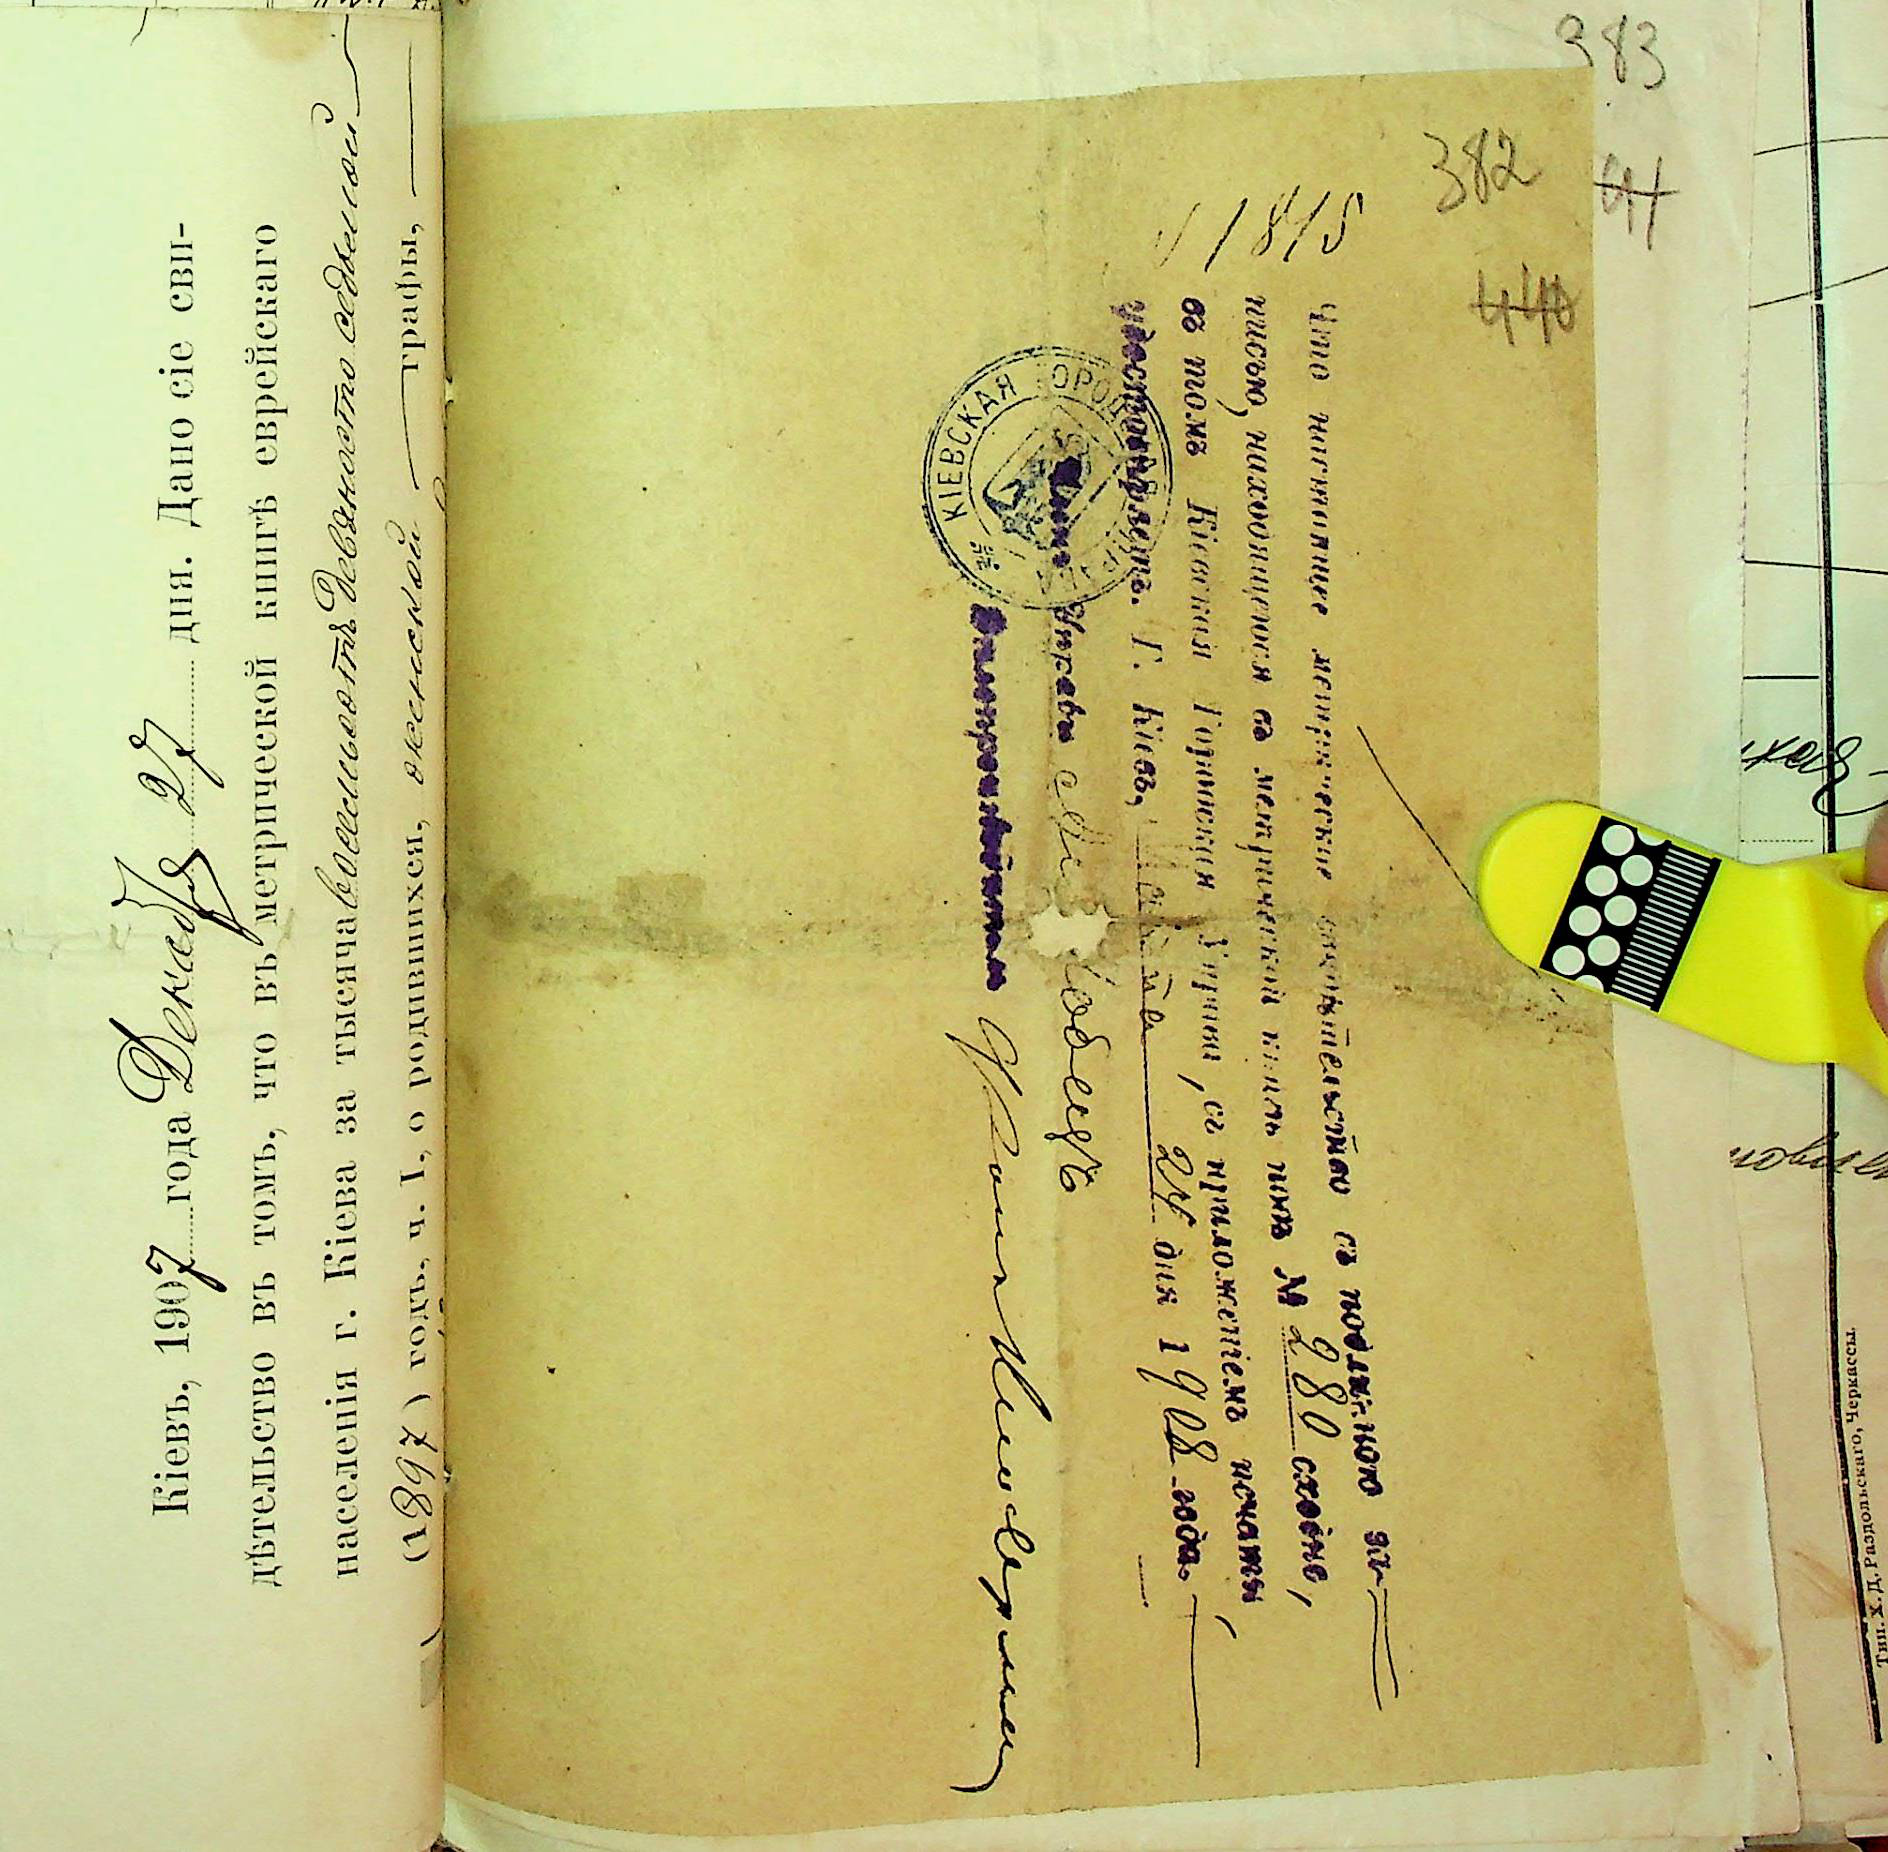 Кіевъ, 1907 года Декабря 27 дня. Дано сіе сви-
дѣтельство въ томъ, что въ метрической книгѣ еврейскаго
населенія г. Кіева за тысяча восемьсотъ девяносто седьмой
(1897) годъ, ч. I, о родившихся, женской графы,
383
41
382
440
1815
Что настоящее метрическое свидѣтельство съ подлинною за-
писью, находящеюся въ метрической книгѣ подъ № 280 сходно,
въ томъ Кіевская Городская Управа, съ приложеніемъ печати,
удостовѣряетъ. Г. Кіевъ, 24 дня 1908 года.
Членъ Управы
Дѣлопроизводитель
КІЕВСКАЯ ГОРОДСКАЯ УПРАВА
Тип. Х. Д. Раздольскаго, Черкассы.